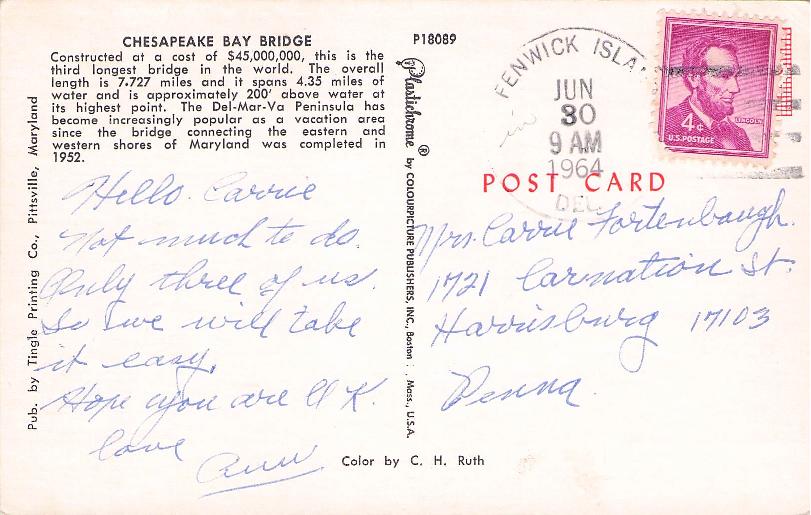 CHESAPEAKE BAY BRIDGE
Constructed at a cost of $45,000,000, this is the
third longest bridge in the world. The overall
length is 7.727 miles and it spans 4.35 miles of
water and is approximately 200' above water at
its highest point. The Del-Mar-Va Peninsula has
become increasingly popular as a vacation area
since the bridge connecting the eastern and
western shores of Maryland was completed in
1952.
Hello. Carrie
Not much to do.
Only three of us.
So we will take
it easy.
Hope you are O K.
love
Ann
Pub. by Tingle Printing Co., Pittsville, Maryland
P18089
Plastichrome ® by COLOURPICTURE PUBLISHERS, INC., Boston , Mass., U.S.A.
FENWICK ISLA
JUN
30
9 AM
1964
DEL.
4¢
LINCOLN
U.S. POSTAGE
POST CARD
Mrs. Carrie Fortenbaugh.
1721 Carnation St.
Harrisburg 17103
Penna.
Color by C. H. Ruth